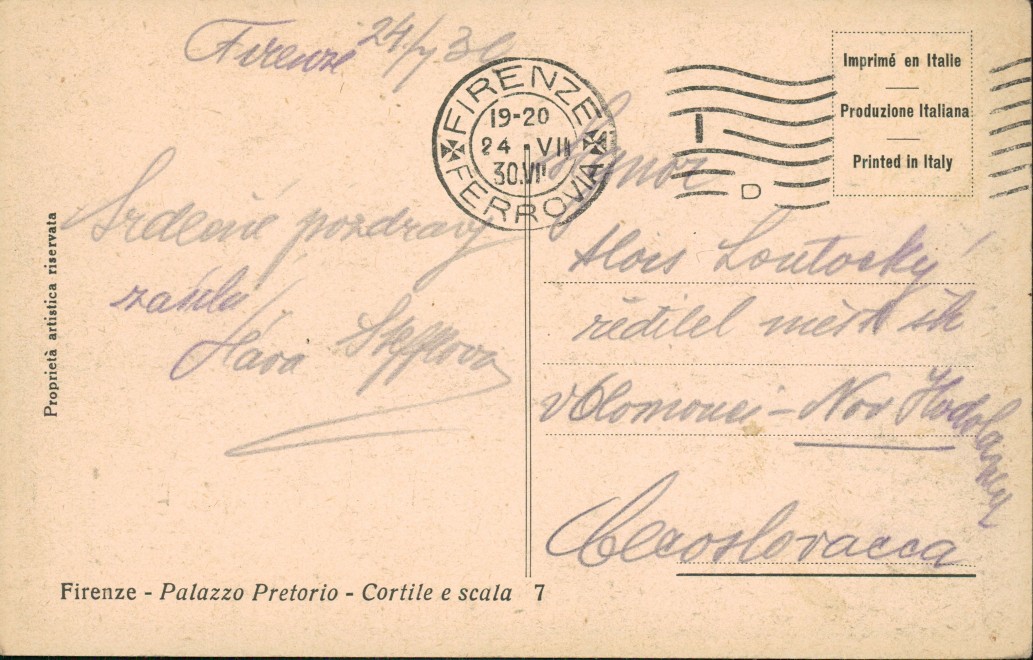 Firenze 24/7 30
FIRENZE FERROVIA
19-20
24 · VII
30.VII
D
Imprimé en Italie
Produzione Italiana
Printed in Italy
Srdečné pozdravy
zasílá
Sláva
Signor
Alois Loutocký
ředitel měšť šk
v Olomouci - Nov Hodolanech
Cecoslovacca
Proprietà artistica riservata
Firenze - Palazzo Pretorio - Cortile e scala 7